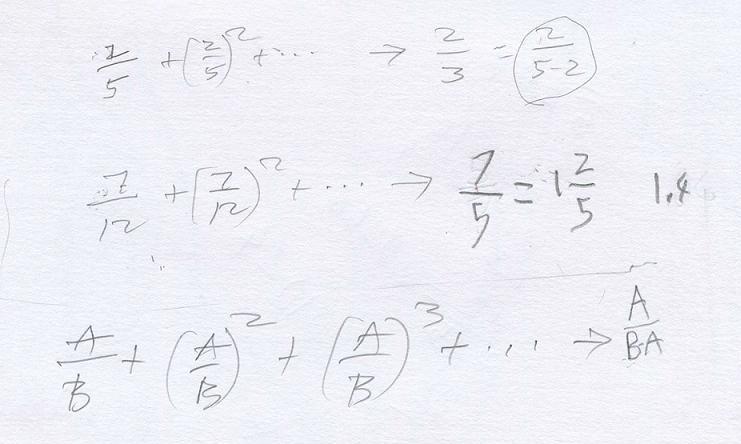 2/5 + (2/5)² + ... → 2/3 = 2/(5-2)
7/12 + (7/12)² + ... → 7/5 = 1 2/5 1.4
A/B + (A/B)² + (A/B)³ + ... → A/(B-A)